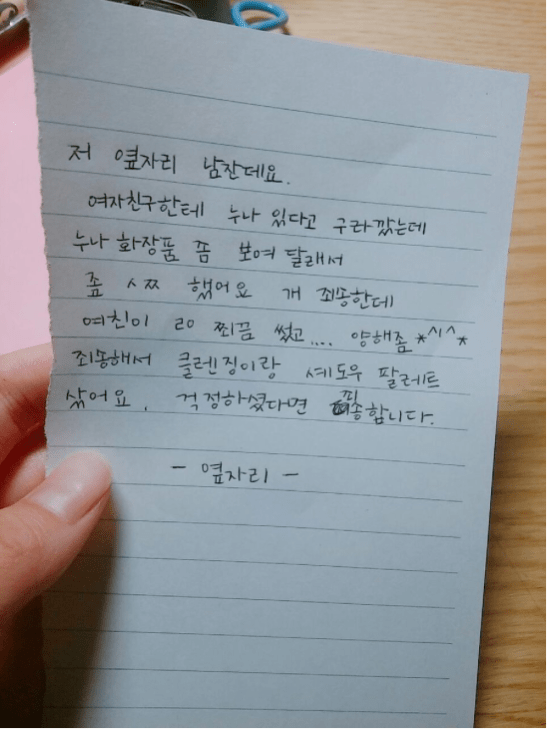 저 옆자리 남잔데요.
여자친구한테 누나 있다고 구라깠는데
누나 화장품 쫌 보여 달래서
좀 ㅅㅉ 했어요 개 죄송한데
여친이 ㄹㅇ 찌끔 썼고.... 양해좀 *^1^*
죄송해서 클렌징이랑 셰도우 팔레트
샀어요. 걱정하셨다면 죄송합니다.
- 옆자리 -